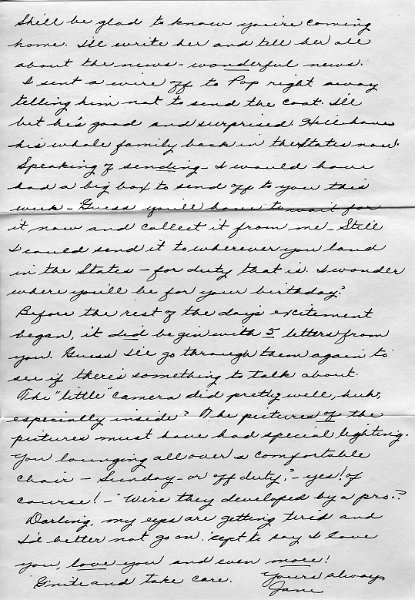 She'll be glad to know you're coming
home. I'll write her and tell her all
about the news - wonderful news.
I sent a wire off to Pop right away
telling him not to send the coat. I'll
bet he's good and surprised. He'll have
his whole family back in the States now.
Speaking of sending - I would have
had a big box to send off to you this
week - Guess you'll have to wait for
it now and collect it from me - Still
I could send it to wherever you land
in the States - for duty that is. I wonder
where you'll be for your birthday?
Before the rest of the day's excitement
began, it did begin with 5 letters from
you. Guess I'll go through them again to
see if there's something to talk about.
The "little" camera did pretty well, huh,
especially inside? The pictures of the
pictures must have had special lighting.
You lounging all over a comfortable
chair - Sunday - or off duty? - yes! of
course! - Were they developed by a pro.?
Darling, my eyes are getting tired and
I'd better not go on. 'cept to say I love
you, love you and even more!
G'nite and take care. Yours always
Jane